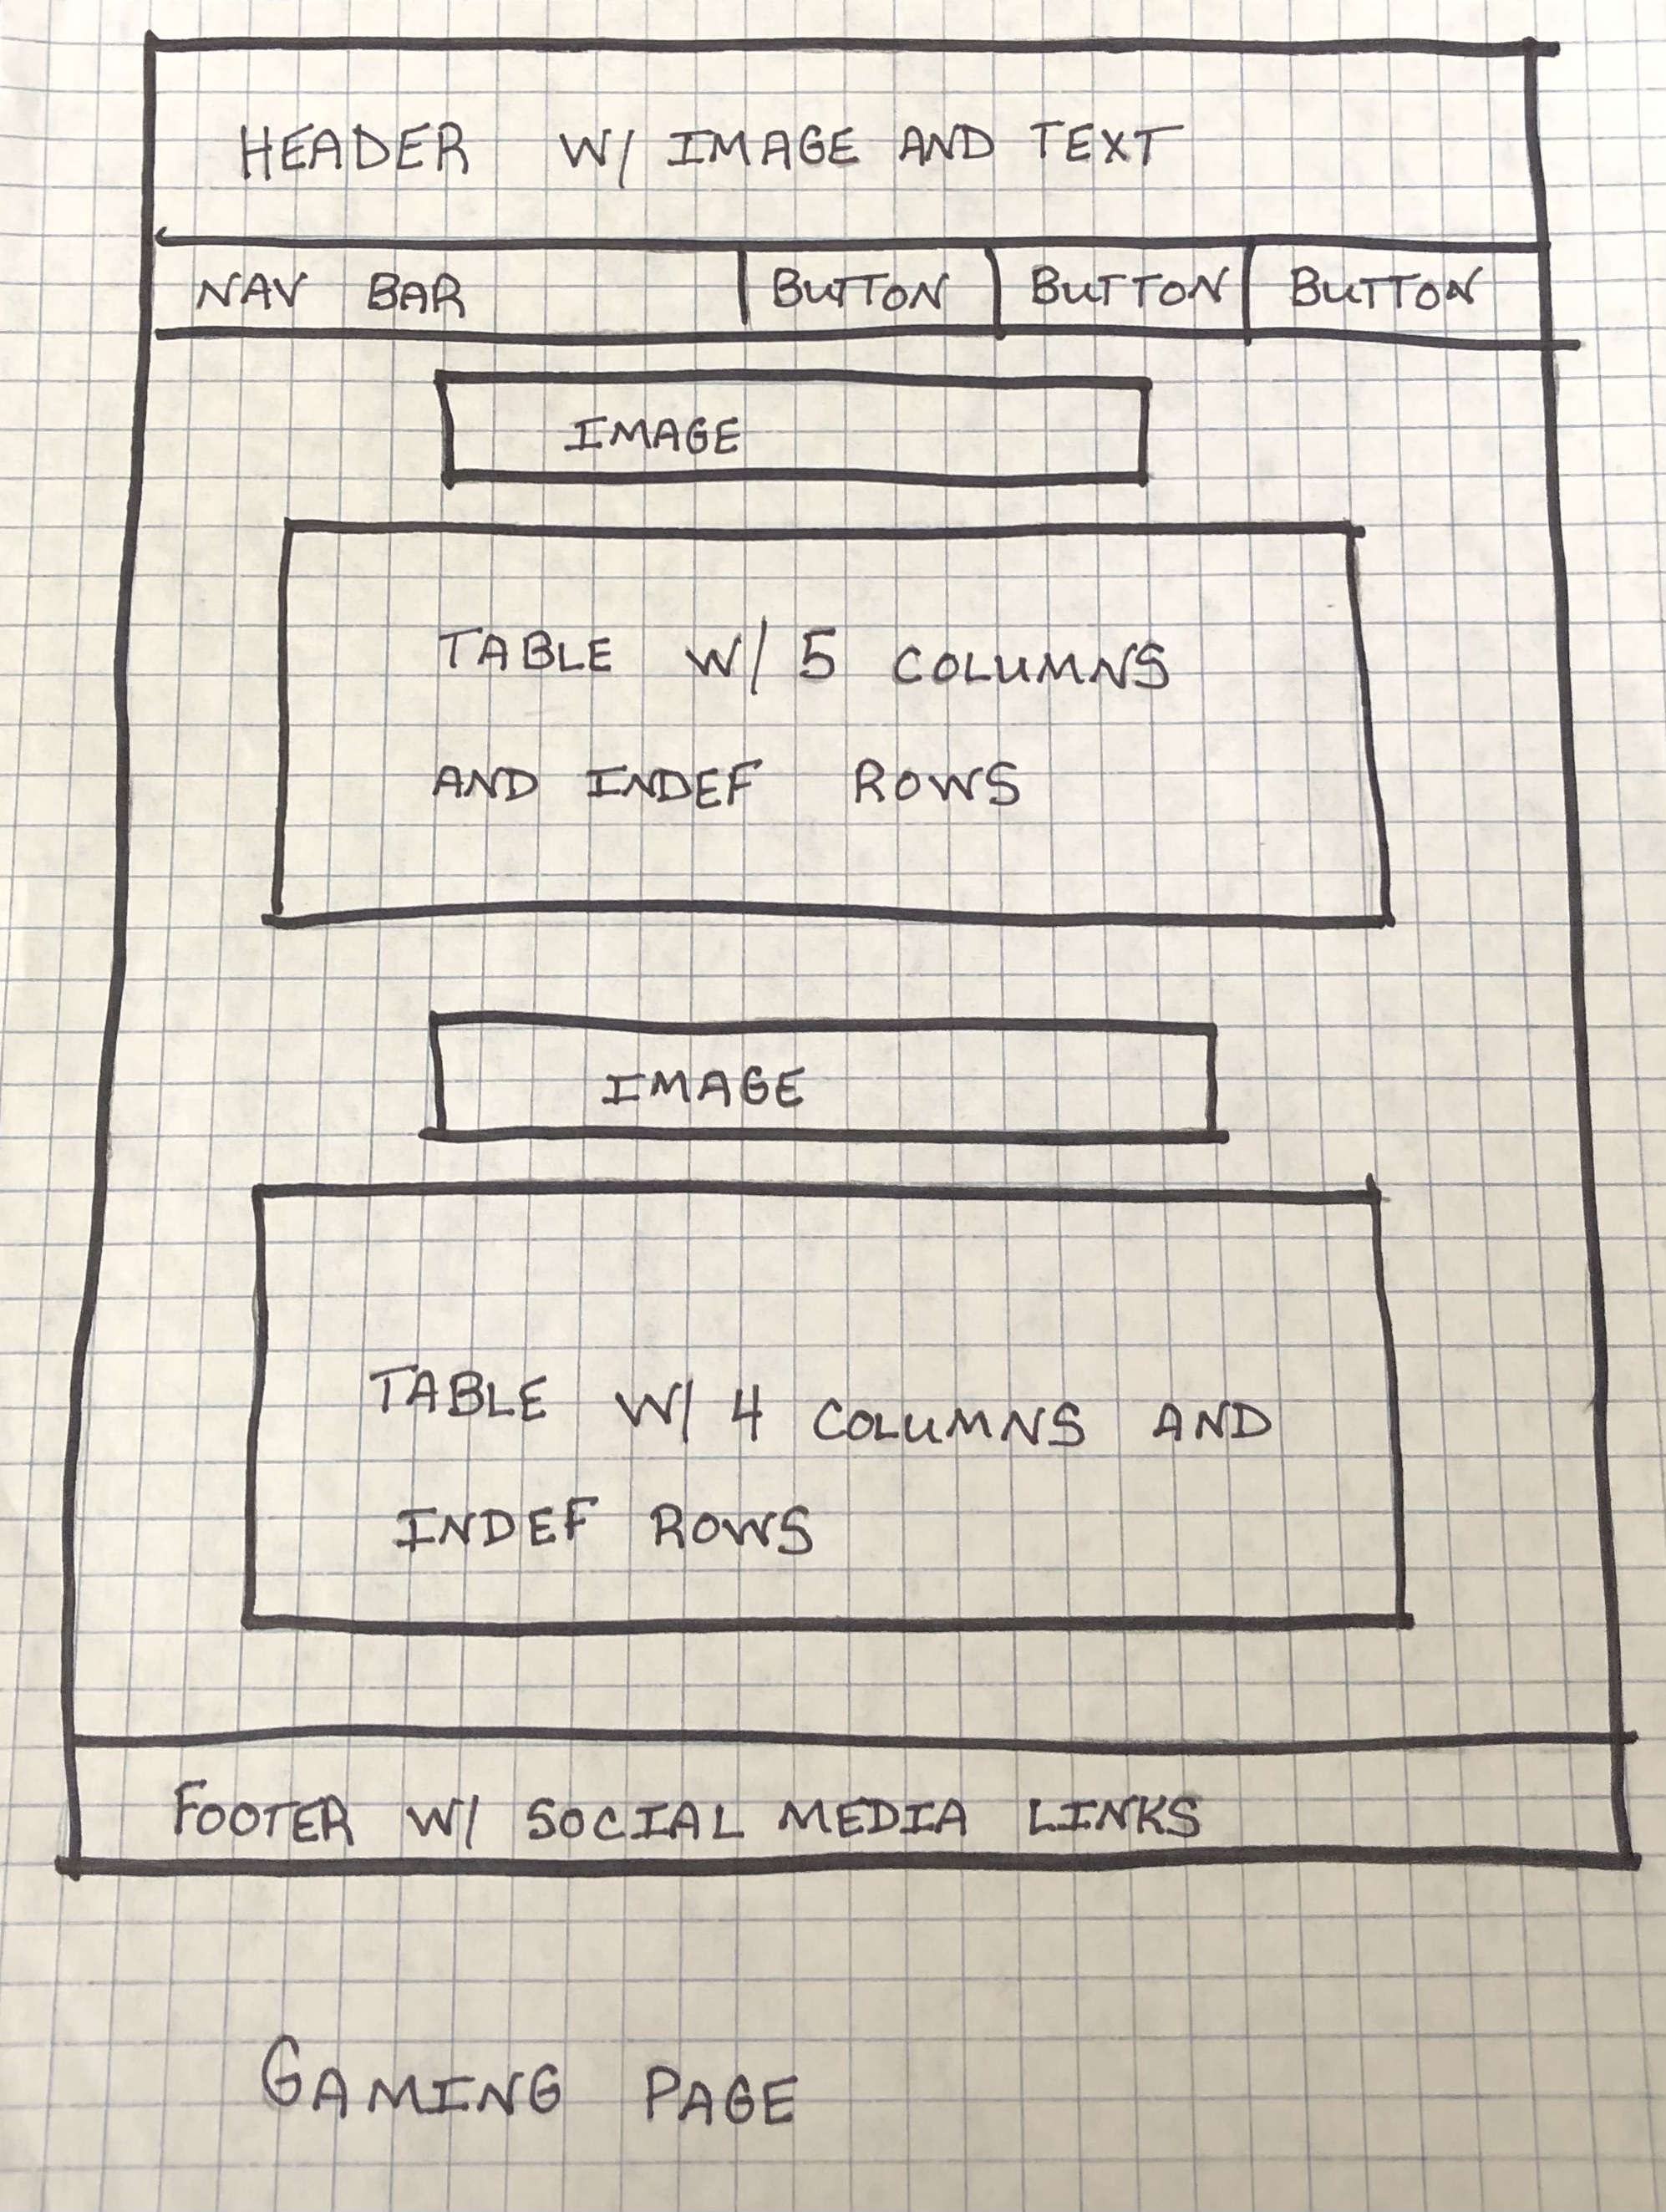 HEADER W/ IMAGE AND TEXT
NAV BAR BUTTON BUTTON BUTTON
IMAGE
TABLE W/ 5 COLUMNS
AND INDEF ROWS
IMAGE
TABLE W/ 4 COLUMNS AND
INDEF ROWS
FOOTER W/ SOCIAL MEDIA LINKS
GAMING PAGE